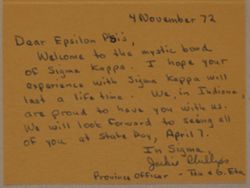 4 November 72
Dear Epsilon Psi's,
Welcome to the mystic bond
of Sigma Kappa. I hope your
experience with Sigma Kappa will
last a life time. We, in Indiana,
are proud to have you with us.
We will look forward to seeing all
of you at State Day, April 7.
In Sigma,
Phillips
Province Officer -